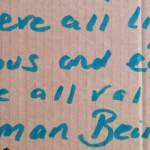 ere all li
ous and e
e all val
man Bein